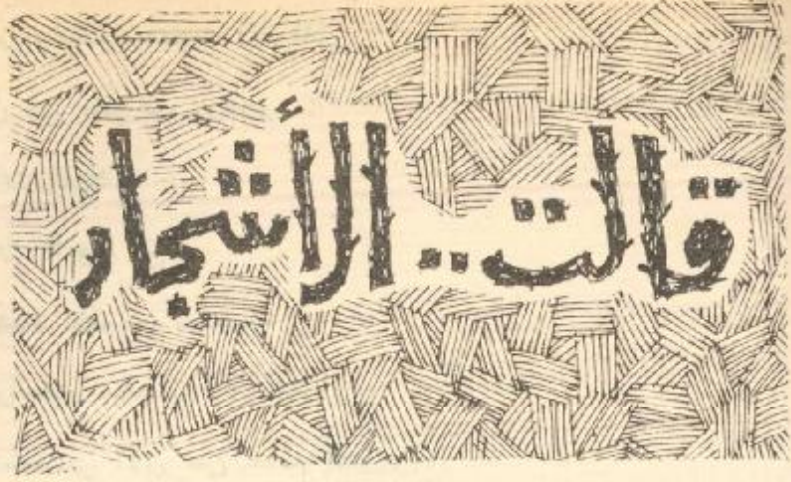 قالت .. الأشجار